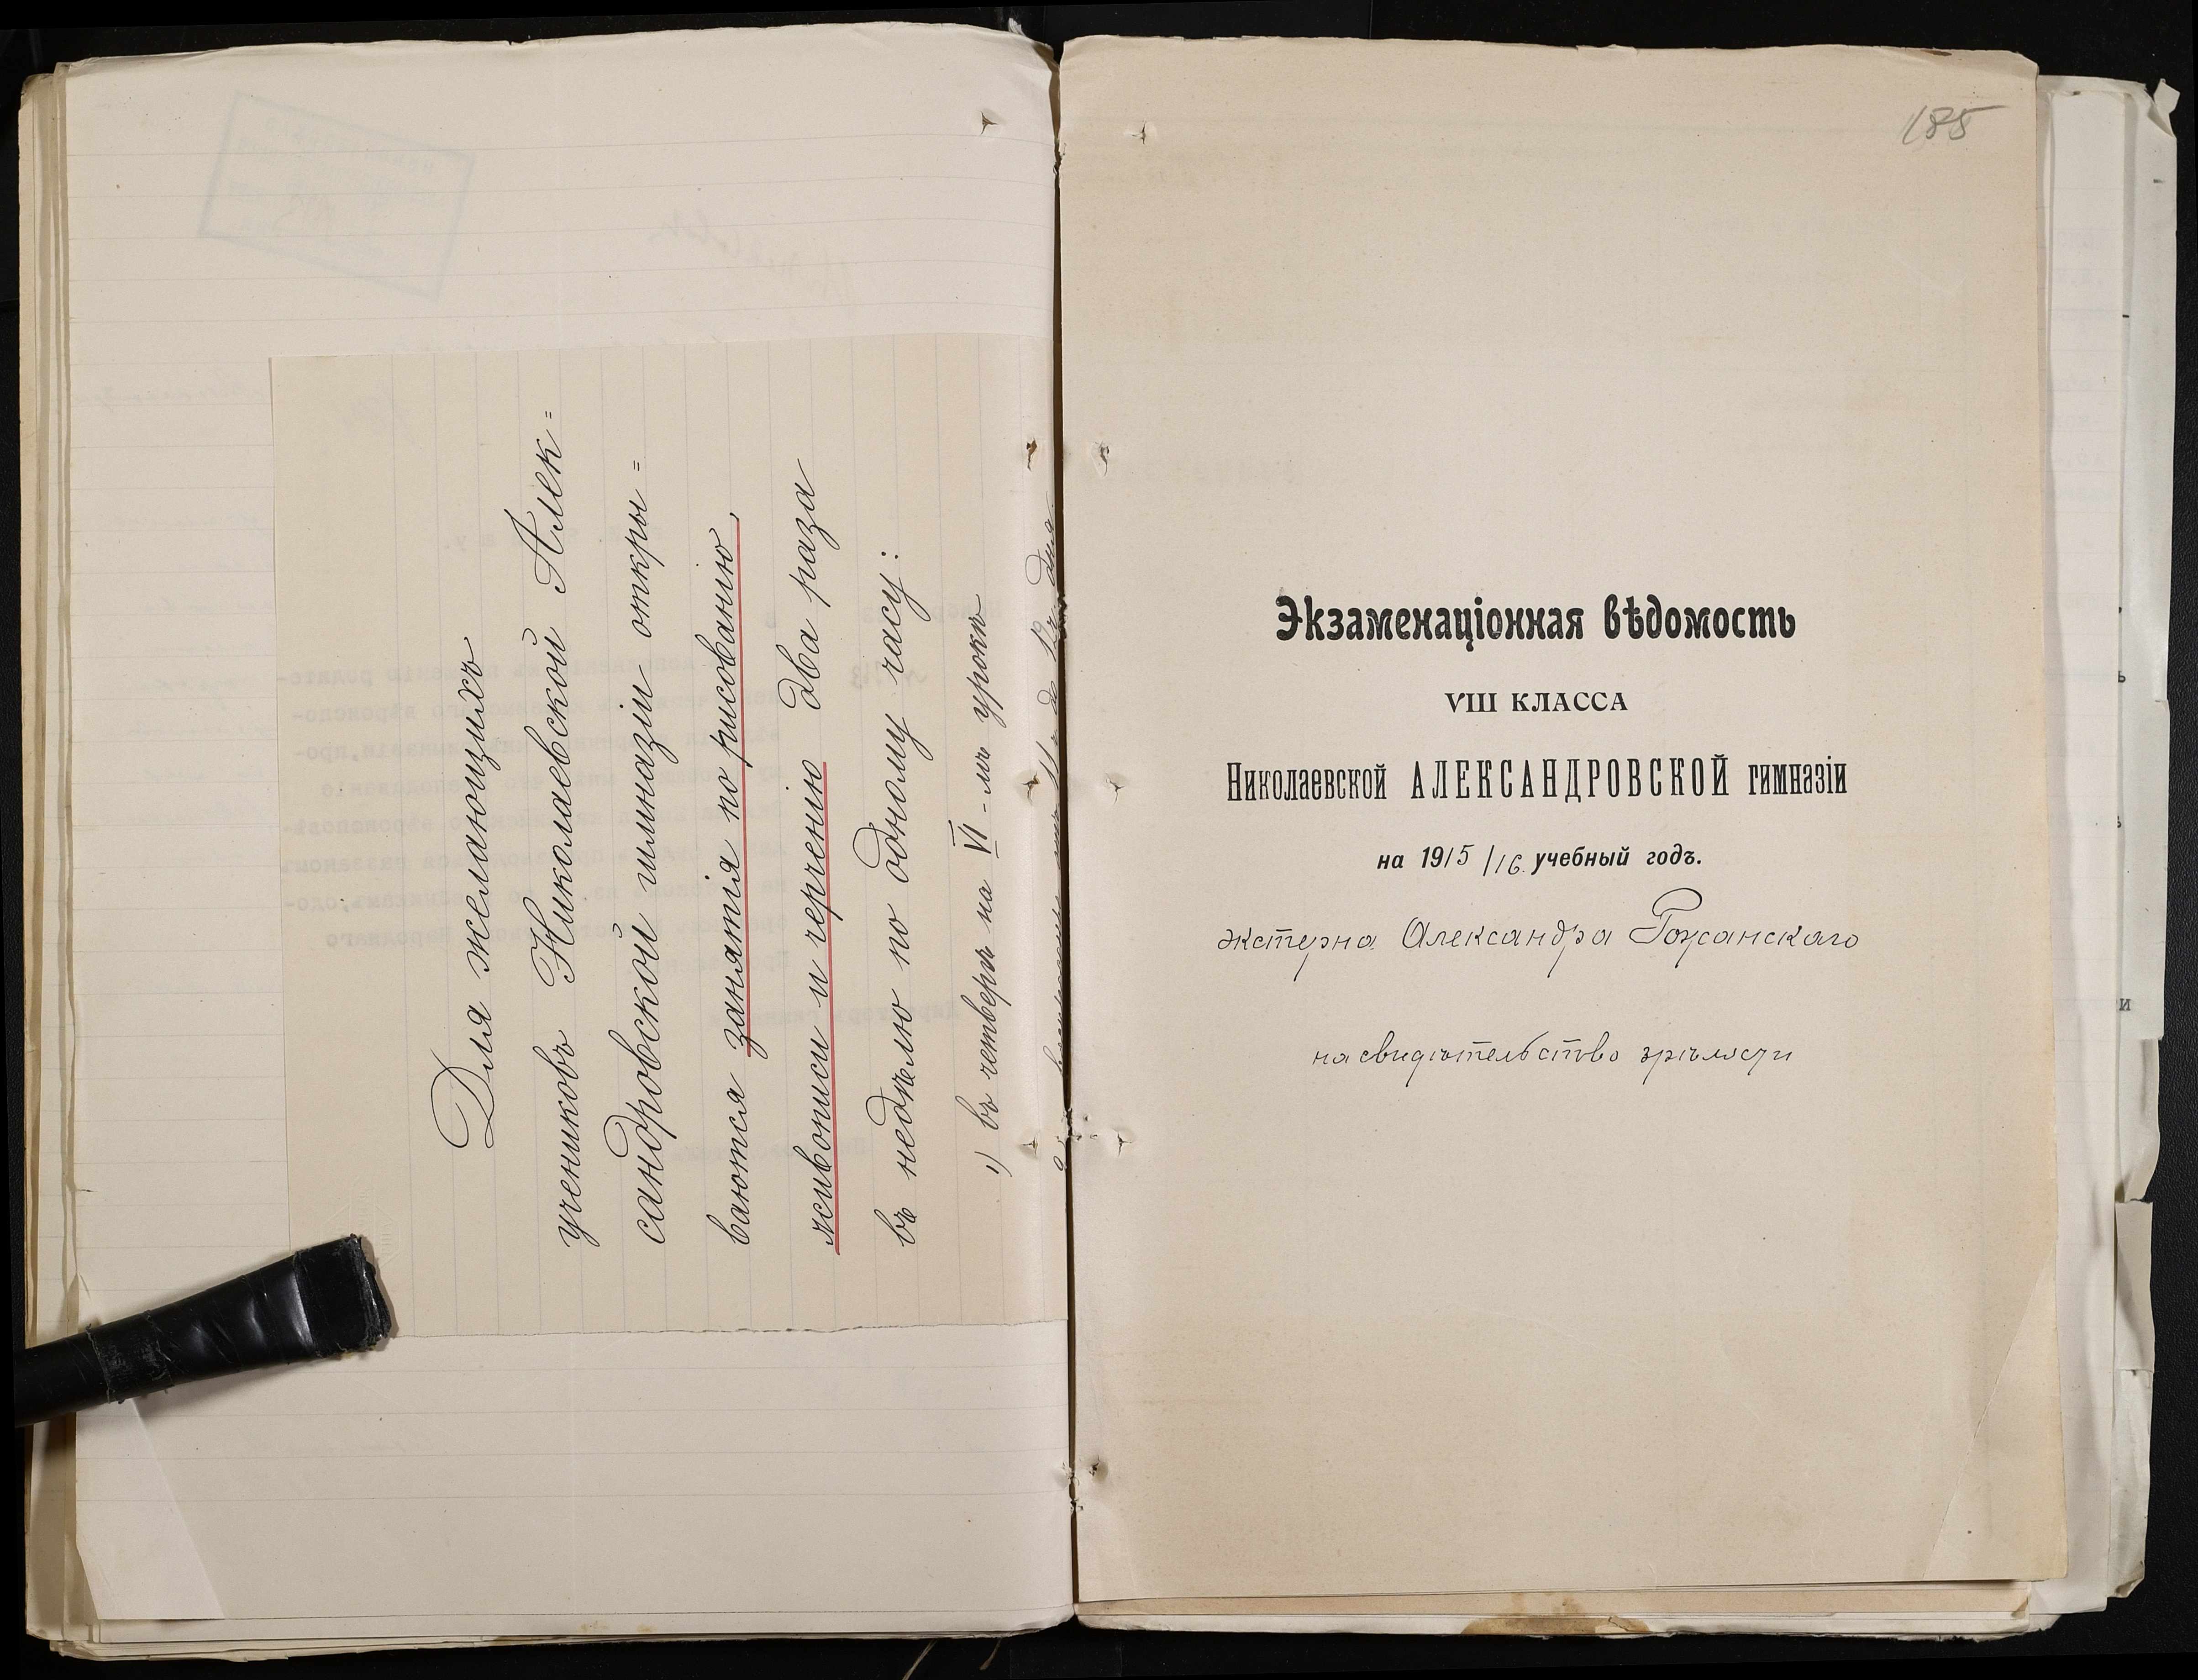 Для желающихъ
учениковъ Николаевской Алек=
сандровской гимназіи откры=
ваются занятія по рисованію,
живописи и черченію два раза
въ недѣлю по одному часу:
1) въ четвергъ на VI-мъ урокѣ
185
Экзаменаціонная вѣдомость
VIII КЛАССА
Николаевской АЛЕКСАНДРОВСКОЙ гимназіи
на 1915/16 учебный годъ.
экстерна Александра Рожанскаго
на свидѣтельство зрѣлости